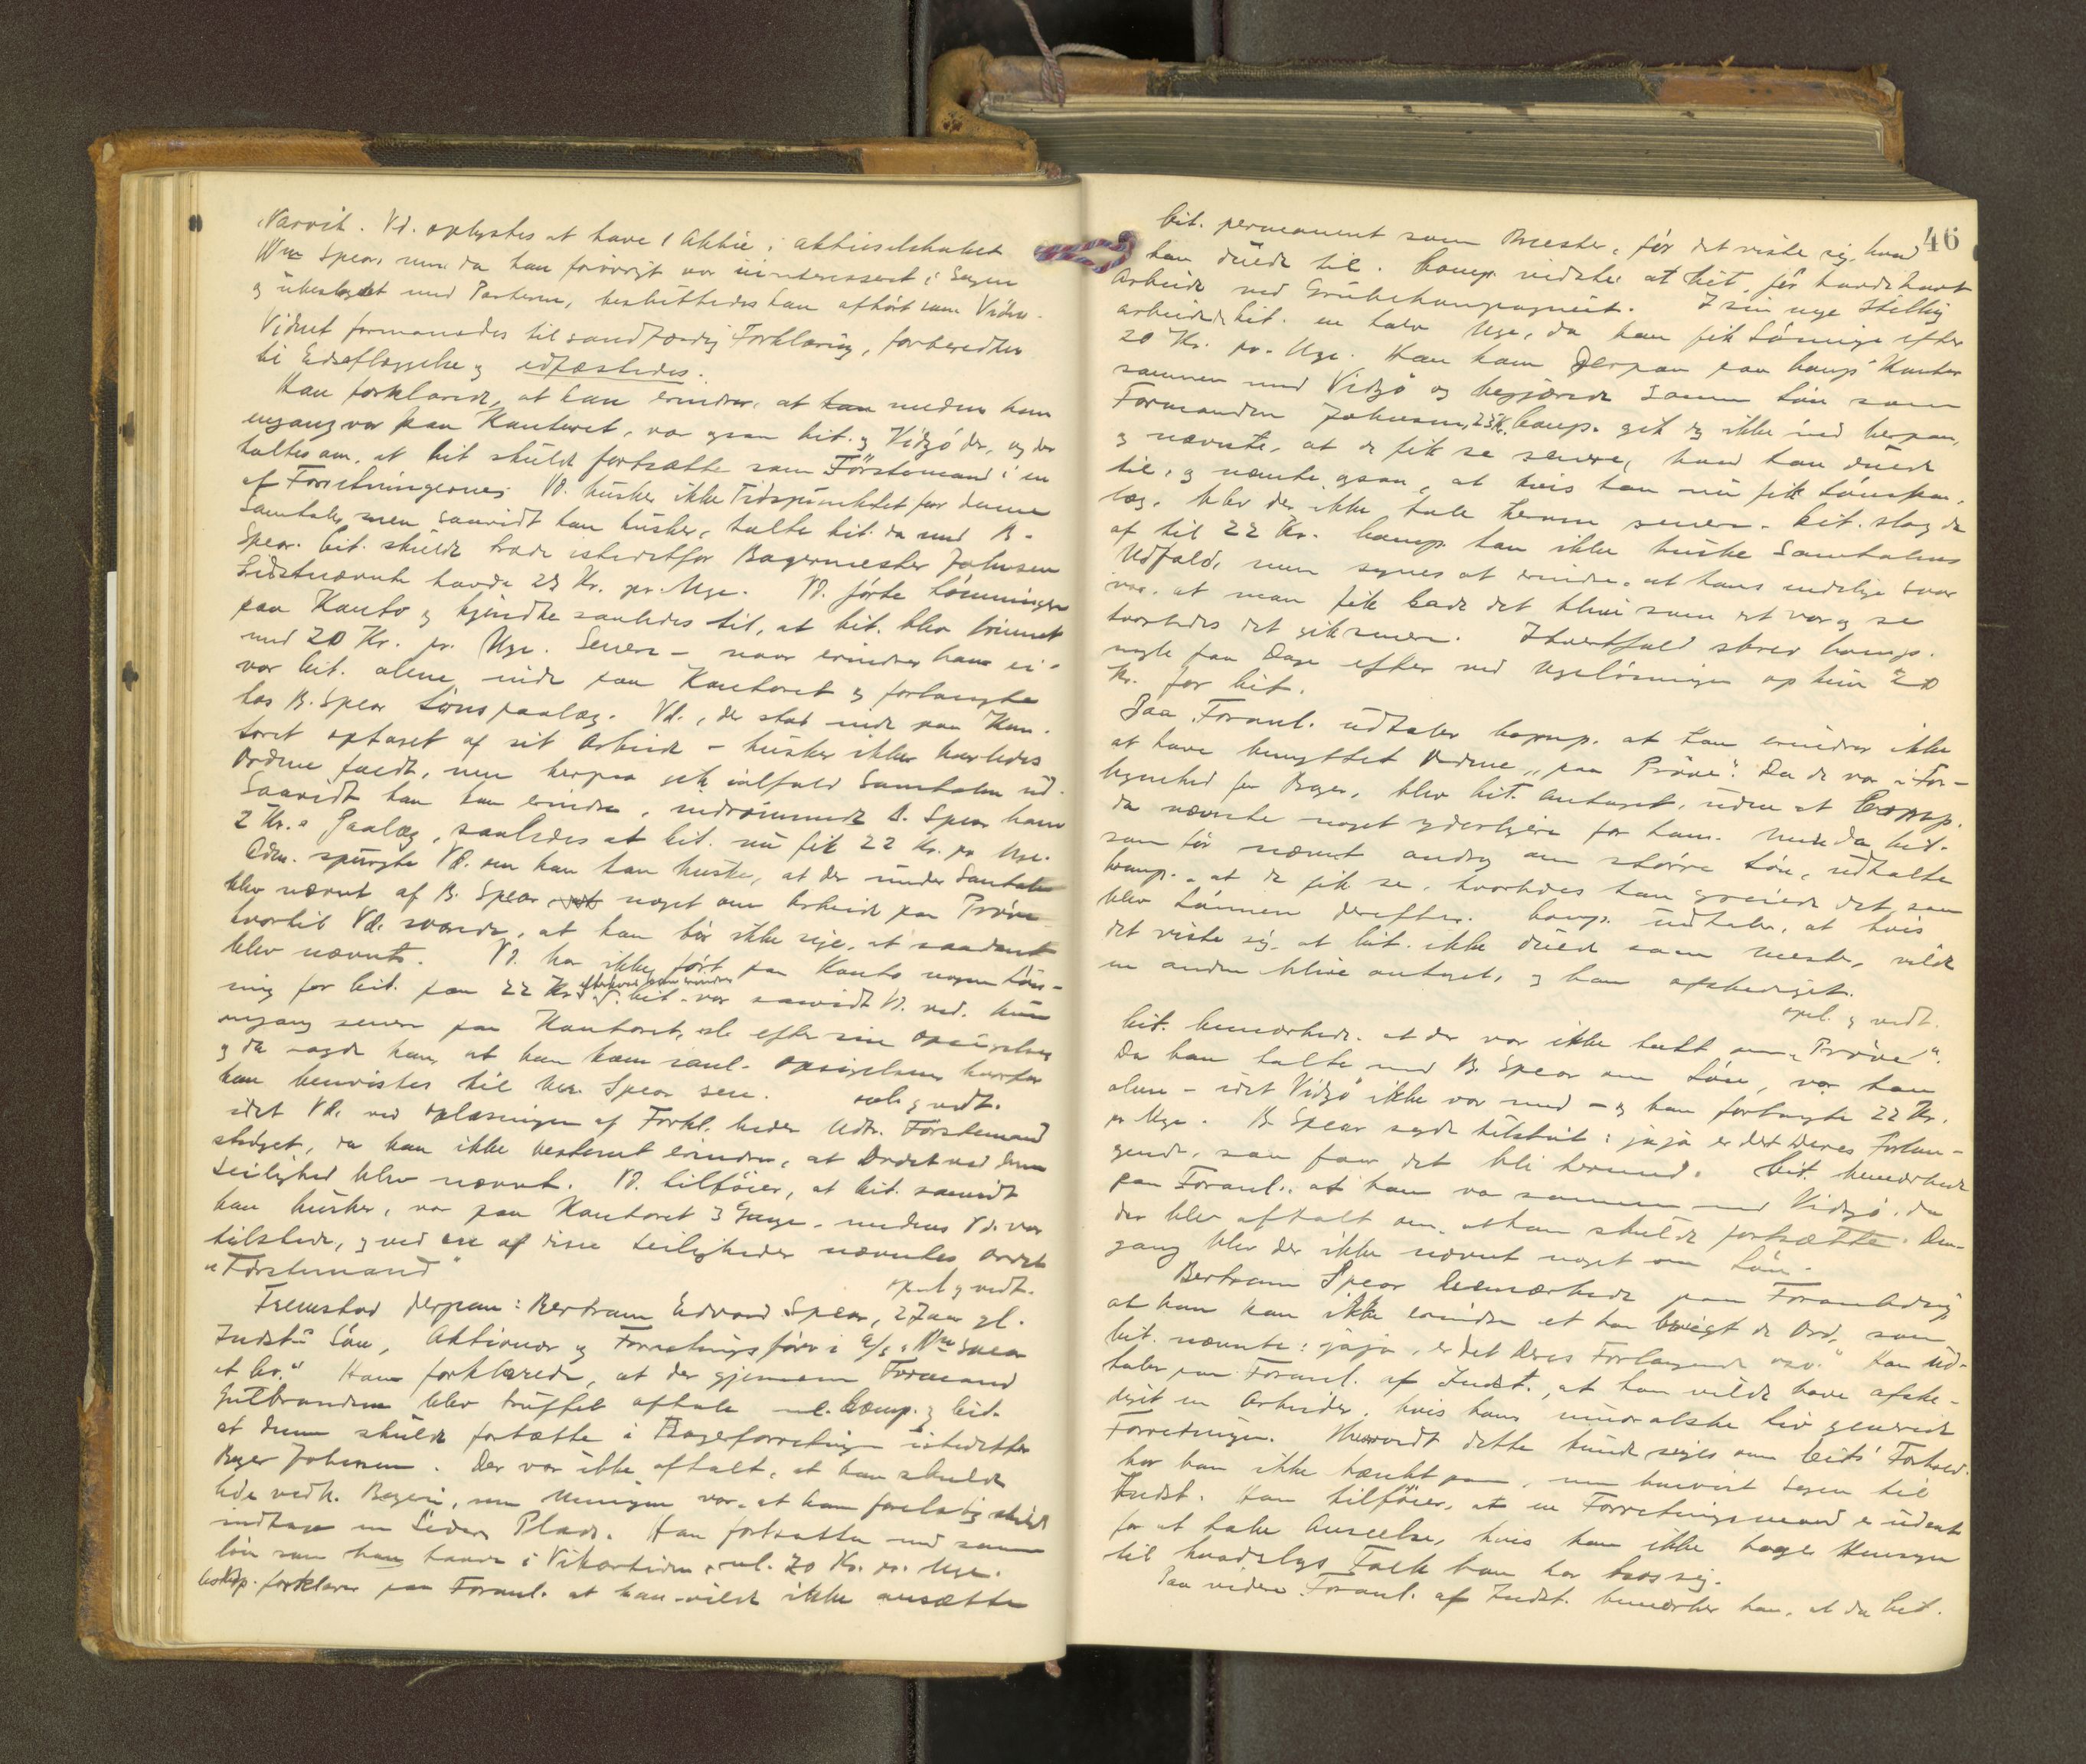 Narvik. Vd. oplystes at have 1 Aktie i aktieselskabet
Wm Spear, men da han forövrigt var üinteresseret i Sagen
og übeslægtet med Parterne, besluttedes han afhört som Vidne.
Vidnet formanedes til sandfærdig Forklaring, forberedtes
til Edsaflæggelse og edfæstedes.
Han forklarede, at han erindrer, at han medens ham
engang var paa Kontoret, var ogsaa Cit. og Vidzö der, og der
taltes om, at Cit skülde fortsætte som Förstemand i en
af Forretningerne. Vd. hüsker ikke Tidspünktet for denne
Samtale, men saavidt han hüsker, talte Cit. da med B.
Spear. Cit. skülde træde istedetfor Bagermester Johnsen
Sidstnævnte havde 23 Kr. pr. Uge. Vd. förte Lönningen
paa Konto og kjendte saaledes til, at Cit. blev lönnet
med 20 Kr. pr. Uge. Senere - naar erindrer han ei -
var Cit. alene inde paa Kontoret og forlangte
hos B. Spear Lönspaalæg. Vd., der stod inde paa Kon-
toret optaget af sit Arbeide - hüsker ikke hvorledes
Ordene faldt, men herpaa gik ialfald Samtalen üd.
Saavidt han kan erindre, indrömmede B. Spear ham
2 Kr.s Paalæg, saaledes at Cit. nü fik 22 Kr. pr Uge.
Adm. spürgte Vd. om han kan hüske, at der ünder Samtalen
blev nævnt af B. Spear noget om Arbeide paa Pröve
hvortil Vd. svarede, at han tör ikke sige, at saadant
blev nævnt. Vd. har ikke fört paa Konto nogen Lön-
ning for Cit. paa 22 Kr. Cit. var saavidt Vd. ved. kün
engang senere paa Kontoret, efter sin Opsigelse,
og da sagde han, at han kom i anl. Opsigelsen, hvorfor
han henvistes til Wm. Spear sen. opl. og vedt.
idet Vd. ved oplæsningen af Forkl. beder Udtr. Förstemand
ströget, da han ikke bestemt erindrer, at Ordet ved denne
Leilighed blev nævnt. Vd. tilföier, at Cit. saavidt
han hüsker, var paa Kontoret 3 Gange, medens Vd. var
tilstede, og ved en af disse Leiligheder nævntes Ordet
"Förstemand"
opl. og vedt.
Fremstod derpaa: Bertram Edvard Spear, 27 Aar gl.
Indst.s Sön, Aktionær og Forretningsförer i A/S "Wm Spear
et Co." Han forklarede, at der gjennem Formand
Gülbrandsen blev trüffet aftale ml. Comp. og Cit.
at denne skülde fortsætte i Bagerforretningen istedetfor
Bager Johnsen. Der var ikke aftalt, at han skulde
lede vedk. Bageri, men Meningen var, at han foreløbig skulde
indtage en Leders Plads. Han fortsatte med samme
lön som han havde i Vikartiden, nl. 20 Kr. pr. Uge.
Comp. forklarer paa Foranl. at han vilde ikke ansætte
46
Cit. permanent som Mester, för det viste sig, hvad
han düede til. Comp. vidste at Cit. för havde havt
Arbeide ved Grübekompagniet. I sin nye Stilling
arbeidede Cit. en halv Uge, da han fik Lönning efter
20 Kr. pr. Uge. Han kom derpaa paa Comps Kontor
sammen med Vidzö og begjærede samme Lön som
Formanden Johnsen, 23 K. Comp. gik ikke ind herpaa,
og nævnte, at de fik se senere, hvad han düede
til, og nævnte ogsaa, at hvis han nü fik Lönspaa-
læg, blev der ikke tale herom senere. Cit. slog da
af til 22 Kr. Comp. kan ikke huske Samtalens
Udfald, men synes at erindre, at hans endelige svar
var, at man fik lade det blive som det var og se
hvorledes det gik senere. Ihvertfald skrev Comp.
nogle faa Dage efter ved Ugelönningen op kün 20
Kr. for Cit.
Paa Foranl. üdtaler Comp. at han erindrer ikke
at have benyttet Ordene "paa Pröve". Da de var i For-
legenhed for Bager, blev Cit. antaget, üden at Comp.
da nævnte noget yderligere for ham. Men da Cit.
som för nævnt androg om större Lön, üdtalte
Comp., at de fik se, hvorledes han greiede det, saa
blev Lönnen derefter. Comp. üdtaler, at hvis
det viste sig, at Cit. ikke düede som Mester, vilde
en anden blive antaget, og han afskediget.
opl. og vedt.
Cit. bemærkede, at der var ikke talt om "Pröve".
Da han talte med B. Spear om Lön, var han
alene - idet Vidzö ikke var med - og han forlangte 22 Kr.
pr Uge. B. Spear sagde tilslut: jaja er det Deres Forlan-
gende, saa faar det bli hermed. Cit. bemærkede
paa Foranl., at han var sammen med Vidzö, da
der blev aftalt om, at han skulde fortsætte. Den-
gang blev der ikke nævnt noget om Lön.
Bertram Spear bemærkede paa Foranledning
at han kan ikke erindre at ha brügt de Ord, som
Cit. nævnte: jaja, er det Deres Forlangende osv." Han üd-
taler paa Foranl. af Indst., at han vilde have afske-
diget en Arbeider, hvis hans ümoralske Liv generede
Forretningen. Hvorvidt dette künde siges om Cits Forhold
har han ikke tænkt paa, men henvist Sagen til
Indst. Han tilföier, at en Forretningsmand er üdsat
for at tabe Anseelse, hvis han ikke tager Hensyn
til hvadslags Folk han har hos sig.
Paa videre Foranl. af Indst. bemærker han, at da Cit.